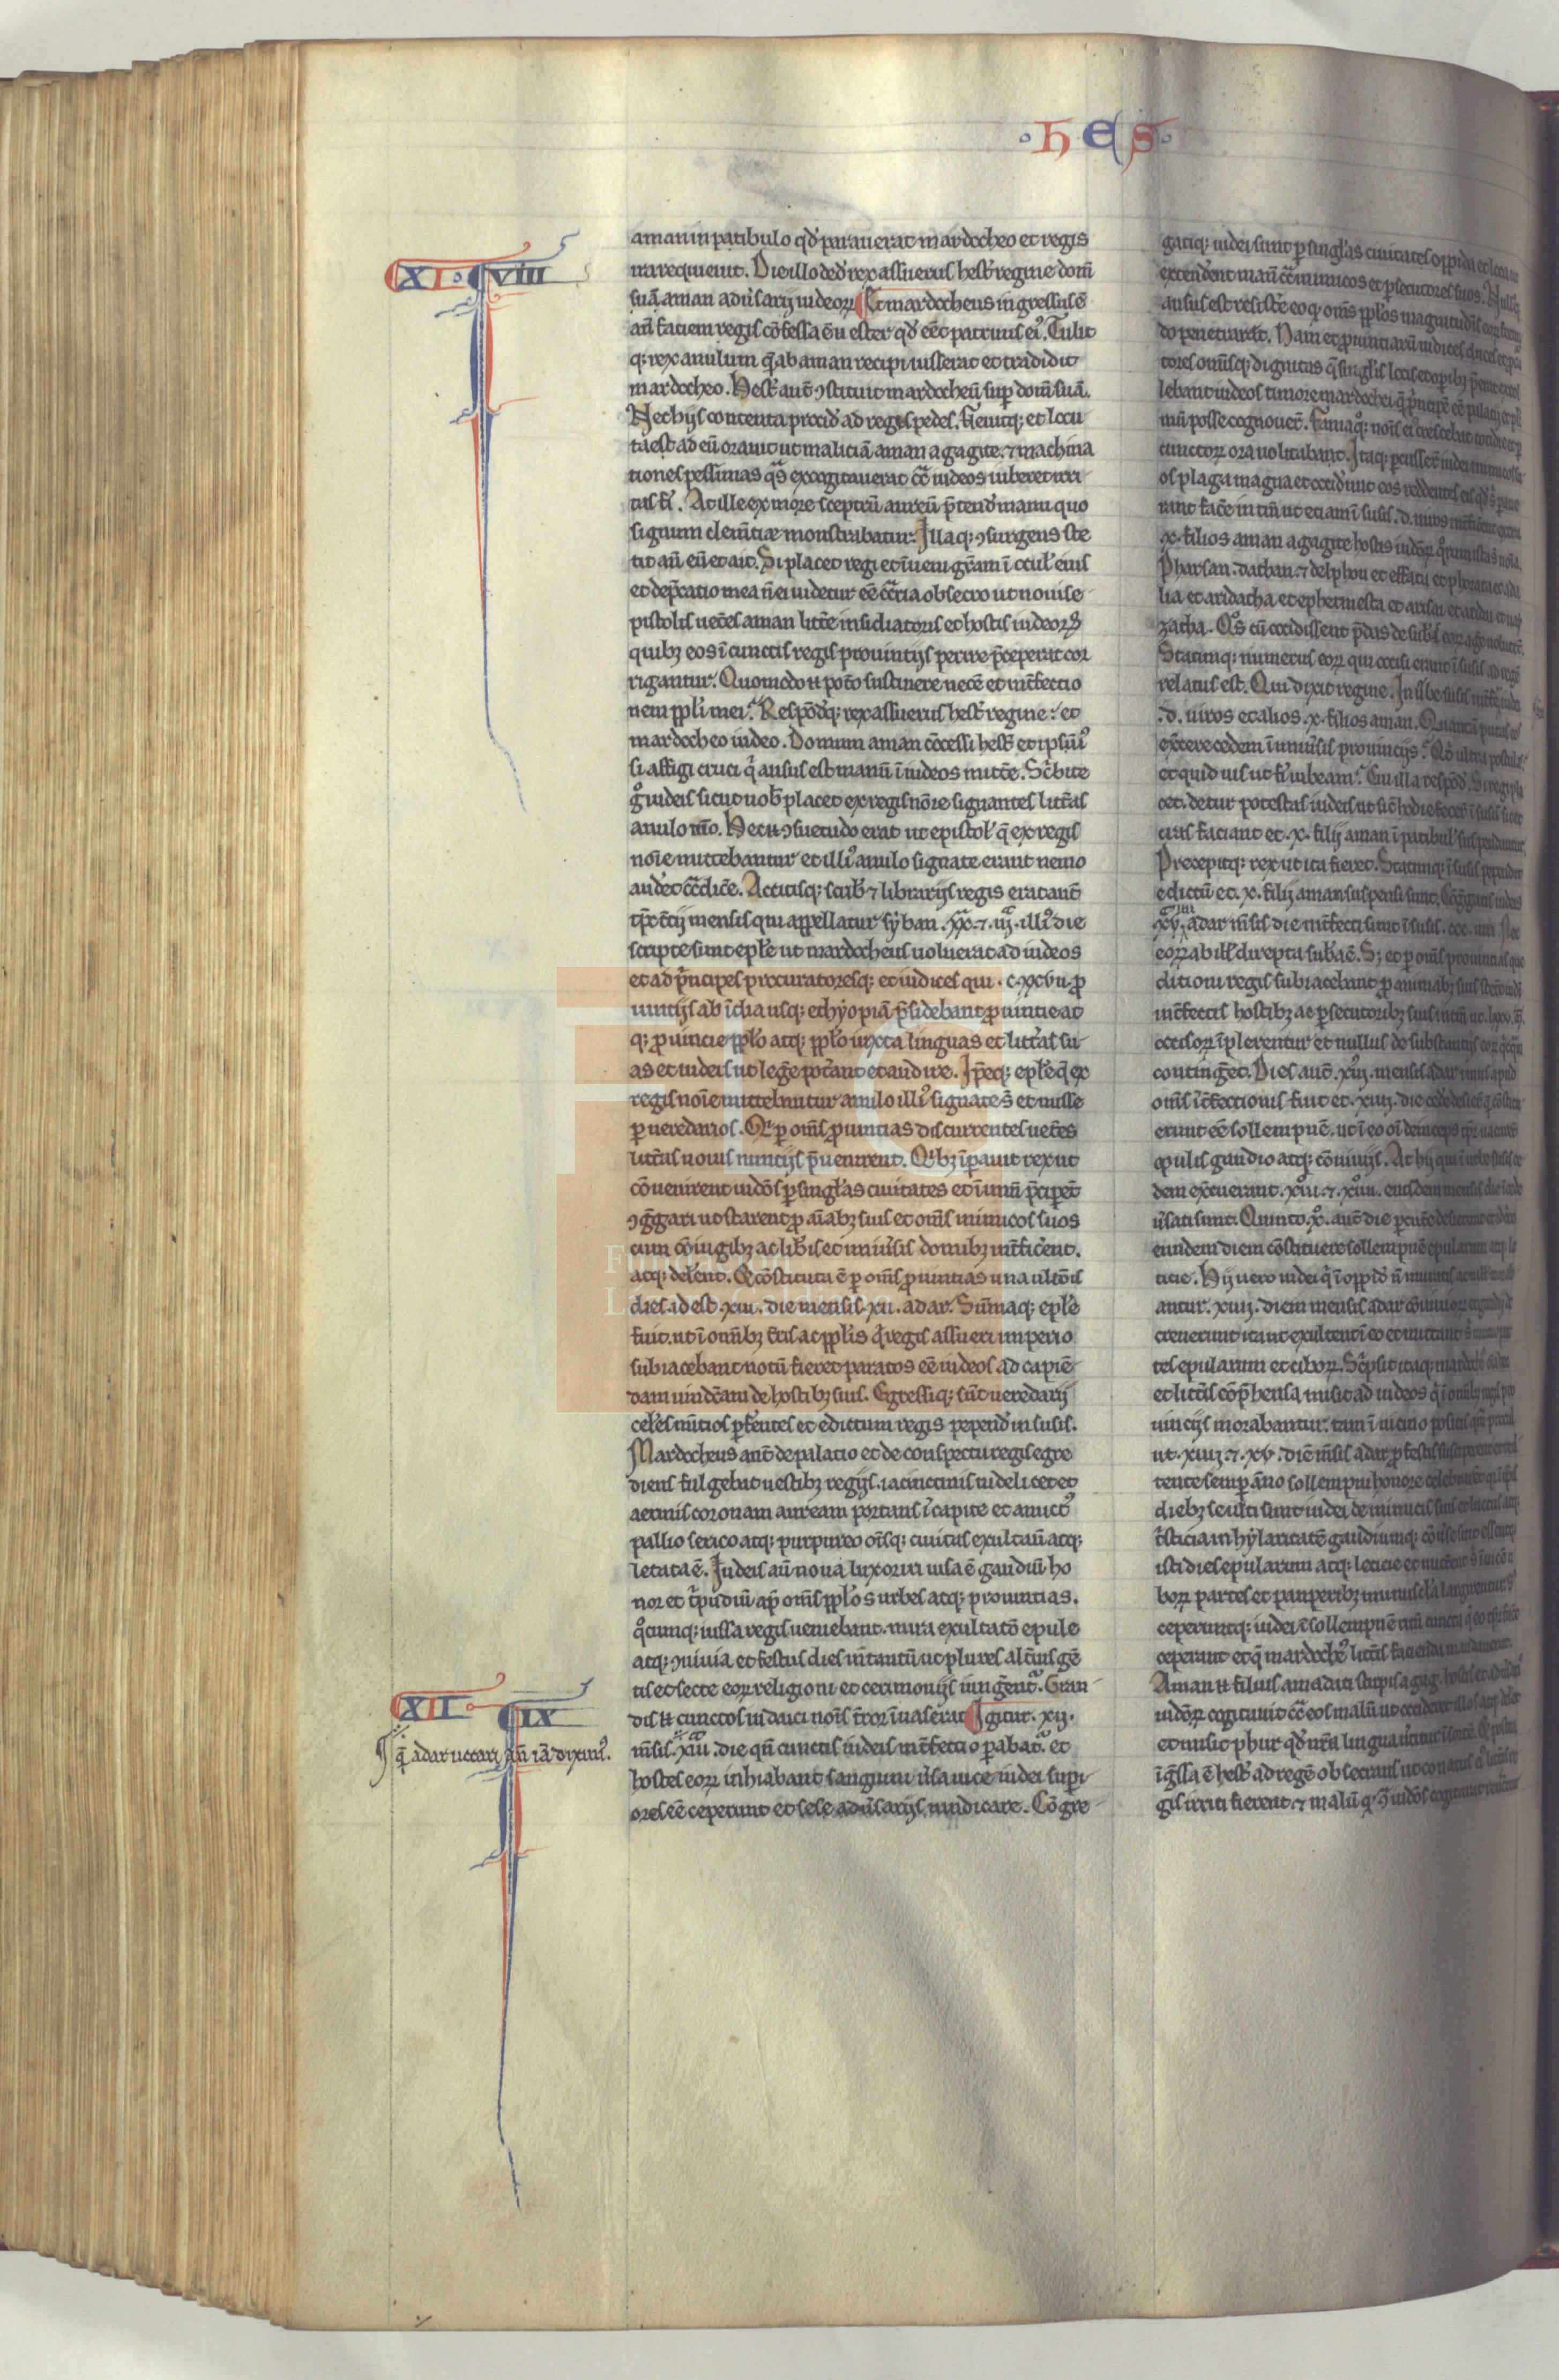 ·HES·
XI· VIII
aman in patibulo qd̓ parauerat mardocheo et regis
ira requieuit. Die illo ded̓ rex assuerus hest̓ regine domū
suā aman adu̓sarij iudeoꝝ Et mardocheus ingressus ē
an̄ faciem regis cōfessa ē u̓ ester qd̓ eēt patruus ei᷒. Tulit
q; rex anulum q̄ ab aman recipi iusserat et tradidit
mardocheo. Hest̓ aut̄ ꝯstituit mardocheū sup̄ domū suā.
Nec hijs contenta procid̓ ad regis pedes. fleuitq; et locu
ta est ad eū orauit ut maliciā aman agagite. ⁊ machina
tiones pessimas q̄s excogitauerat cͣ iudeos iuberet irri
tas fi̓. At ille ex more sceptrū aureū p̄tend̓ manu quo
signum clem̄tiae monstrabatur. Illaq; ꝯsurgens ste
tit an̄ eū et ait. Si placet regi et īueni gr̄am ī ocul̓ eius
et dep̄catio mea n̄ ei uidetur eē ͣria obsecro ut nouis e
pistolis uet̓es aman litt̓e insidiatoris et hostis iudeoꝝ
quibꝫ eos ī cunctis regis prouintijs perire p̄ceperat cor
rigantur. Quomodo n̄ pot̓o sustinere necē et int̓fectio
nem ppl̓i mei. Respōd̓q; rex assuerus hest̓ regine: et
mardocheo iudeo. Domum aman cōcessi hest̓ et ipsū ī
si affigi cruci q̓ ausus est manū ī iudeos mitt̓e. Sc̓bite
g̊ iudeis sicut uob̓ placet ex regis nōie signantes litt̓as
anulo m̄o. Hec n̄ ꝯsuetudo erat ut epistol̓ q̄ ex regis
noīe mittebantur et illi᷒ anulo signate erant nemo
aud̓et cͣdic̓e. Accitisq; scib̓ ⁊ librarijs regis erat aut̄
tp̄s t̓cij mensis qui appellatur syban .xxͣ. ⁊ .iijͣ. illi᷒ die
scripte sunt epl̓e ut mardocheus uoluerat ad iudeos
et ad p̓ncipes procuratoresq; et iudices qui .c.xxvii. p̄
uintijs ab īdia usq; ethyopiā p̄sidebant p̄uintie at
q; p̄uincie ppl̓o atq; ppl̓o iuxta linguas et litt̓as su
as et iudeis ut leg̓e pot̓ant et audire. Ip̄eq; epl̓e q̄ ex
regis noīe mittebantur anulo illi᷒ signate s̄ et misse
p̄ ueredarios. Q̓ p̄ om̄s p̄uintias discurrentes uet̓es
litt̓as nouis nuncijs p̄uenirent. Q̓bꝫ īperauit rex ut
cōuenirent iud̓os p̄ singl̓as ciuitates et ī unū p̄cip̄et
ꝯg̓gari ut starent p̄ aīabꝫ suis et om̄s inimicos suos
cum cōiugibꝫ ac lib̓is et uniu̓sis domibꝫ int̓fic̓ent.
atq; del̓ent. Et cōstituta ē p̄ om̄s p̄uintias una ultōis
dies id est .xiii. die mensis .xii. adar. Sūmaq; epl̓e
fuit. ut ī omībꝫ t̓ris ac ppl̓is q̓ regis assueri imperio
subiacebant notū fieret paratos eē iudeos ad capiē
dam uindc̄am de hostibꝫ suis. Egressiq; sūt ueredarij
cel̓es nūtios p̄ferentes et edictum regis pepend̓ in susis.
Mardocheus aut̄ de palatio et de conspectu regis egre
diens fulgebat uestibꝫ regijs. iacinctinis uidelicet et
aerinis coronam auream portans ī capite et amict᷒
pallio serico atq; purpureo oīsq; ciuitas exultau̓ atq;
letata ē. Iudeis au̓ noua lux oriri uisa ē gaudiū ho
nor et t̓pudiū ap̄ om̄s ppl̓os urbes atq; prouintias.
q̊cunq; iussa regis ueniebant. mira exultatō epule
atq; ꝯuiuia et festus dies in tantū ut plures alt̓ius gē
tis et secte eoꝝ religioni et cerimonijs iung̓entͣ. Gran
dis n̄ cunctos iudaici noīs t̓ror īuaserat Igitur .xij.
XII IX
q̄ adar uocari an̄ iā diximus.
m̄sis .xiiiͣ. die qn̄ cunctis iudeis int̓fectio p̄abatͣ. et
hostes eoꝝ inhiabant sanguini u̓sa uice iudei supi
ores eē ceperunt et se de adu̓sarijs uindicare. Cōgre
gatiq; iudei sunt p̄ singl̓as ciuitates oppida et loca ut
extend̓ent manū cͣ inimicos et p̄secutores suos. Nullusq;
ausus est resist̓e eo q̄ om̄s ppl̓os magnitudīs eoꝝ formi
do penetuarat. Nam et p̄uintiarū iudices duces et p̄cu
tores omīsq; dignitas q̄ singl̓is locis et opibꝫ p̄erat extol
lebant iudeos timore mardochei q̄ p̓ncipē eē palatij et pl̓i
mū posse cognouer̄t. Famaq᷒; noīs ei crescebat cotidie et p̄
cunctoꝝ ora uolitabant. Itaq; p̄cusser̄t iudei inimicos su
os plaga magna et occid̓unt eos reddentes eis qd̓ s̓ paue
rant fac̓e in tm̄ ut etiam ī susis .d. uiros int̓ficerent extra
.x. filios aman agagite hostis iud̓oꝝ q̊rum ista s̄ noīa.
Pharsan. dathan. ⁊ delphon et effata et phorata et ada
lia et aridatha et ephermesta et arisai et aridai et uai
zatha. Q̊s cū occidissent p̄das de subs̓ eoꝝ age noluer̄t.
Statimq; numerus eoꝝ qui occisi erant ī susis ad regē
relatus est. Qui dixit regine. In urbe susis int̓fec̓e iudei
.d. uiros et alios .x. filios aman. Quantā putas eos
ex̓cere cedem ī uniu̓sis prouincijs. Q̓d ultra postulas
et quid uis ut fi̓ iubeam. Cui illa respōd̓. Si regi pla
cet. detur potestas iudeis ut sic̄ hodie fecer̄t ī susis sic et
cras faciant et .x. filij aman ī patibul̓ suspendantur
Precepitq; rex ut ita fieret. Statimq; ī susis pependit
edictū et .x. filij aman suspensi sunt. Cōg̓gatis iudeis
xiiii adar m̄sis die int̓fecti sunt ī susis .ccc. uiri. Nec
eoꝝ ab ill̓ direpta sub̓ ē. Sꝫ et p̄ om̄s prouintias que
ditioni regis subiacebant p̄ animabꝫ suis stet̓unt iudei
int̓fectis hostibꝫ ac p̄secutoribꝫ suis intm̄ ut .lxxv. m̄.
occisoꝝ īplerentur et nullus de substantijs eoꝝ q̄cq̄m
conting̓et. Dies aut̄ .xiij. mensis adar unus apud
om̄s īt̓fectionis fuit et .xiiij. die cede desier̄t q̄ cōstitu
erunt eē sollempnē. ut ī eo oī deinceps tp̄r uacarent
epulis gaudio atq; cōuiuijs. At hij qui ī urbe susis ce
dem ex̓cuerant .xiij. ⁊ .xiiij. eiusdem mensis die ī cede
u̓sati sunt. Quinto .x. aut̄ die p̄cut̓e desierunt et idcirco
eundem diem cōstituere sollempnē epularum atq; le
ticie. Hij uero iudei q̓ ī oppid̓ n̄ muratis ac uill̓ morab
antur .xiiij. diem mensis adar cōuiuioꝝ et gaudij d
creuerunt ita ut exultent ī eo et mittant s̓ mutuo par
tes epularum et ciboꝝ. Sc̓psit itaq; mardoche᷒ oīa hec
et litt̓is cōp̄hensa misit ad iudeos q̓ ī omībꝫ regis pro
uincijs morabantur. tam ī uicino positis qm̄ procul
ut .xiiij. ⁊ .xv. diē m̄sis adar p̄ festis susciperent et reū
tente semper āno sollempni honore celebrarēt q̓ ī ip̄is
diebꝫ se ulti sunt iudei de inimicis suis et luctus atq;
t̓sticia in hylaritatē gaudiumq; cōu̓se sint essentq;
isti dies epularum atq; leticie et mitt̓ent s̓ īuicē ci
boꝝ partes et pauperibꝫ munuscl̓a largirentur. Sus
ceperuntq; iudei ī sollempnē ritū cuncta q̄ eo tp̄r fac̓e
ceperant et q̄ mardoche᷒ litt̓is facienda mandauerat.
Aman n̄ filius amadati stirpis agag. hostis et adu̓sari᷒
iud̓oꝝ cogitauit cͣ eos malū ut occideret illos atq; deler̄t
et misit phur qd̓ nr̄a lingua u̓titur ī sortē. Et postea
īg̓ssa ē hest̓ ad regē obsecrans ut conatus ei᷒ litt̓is re
gis irriti fierent. ⁊ malū q̄ ͣ iud̓os cogitauerat reu̓terͣ